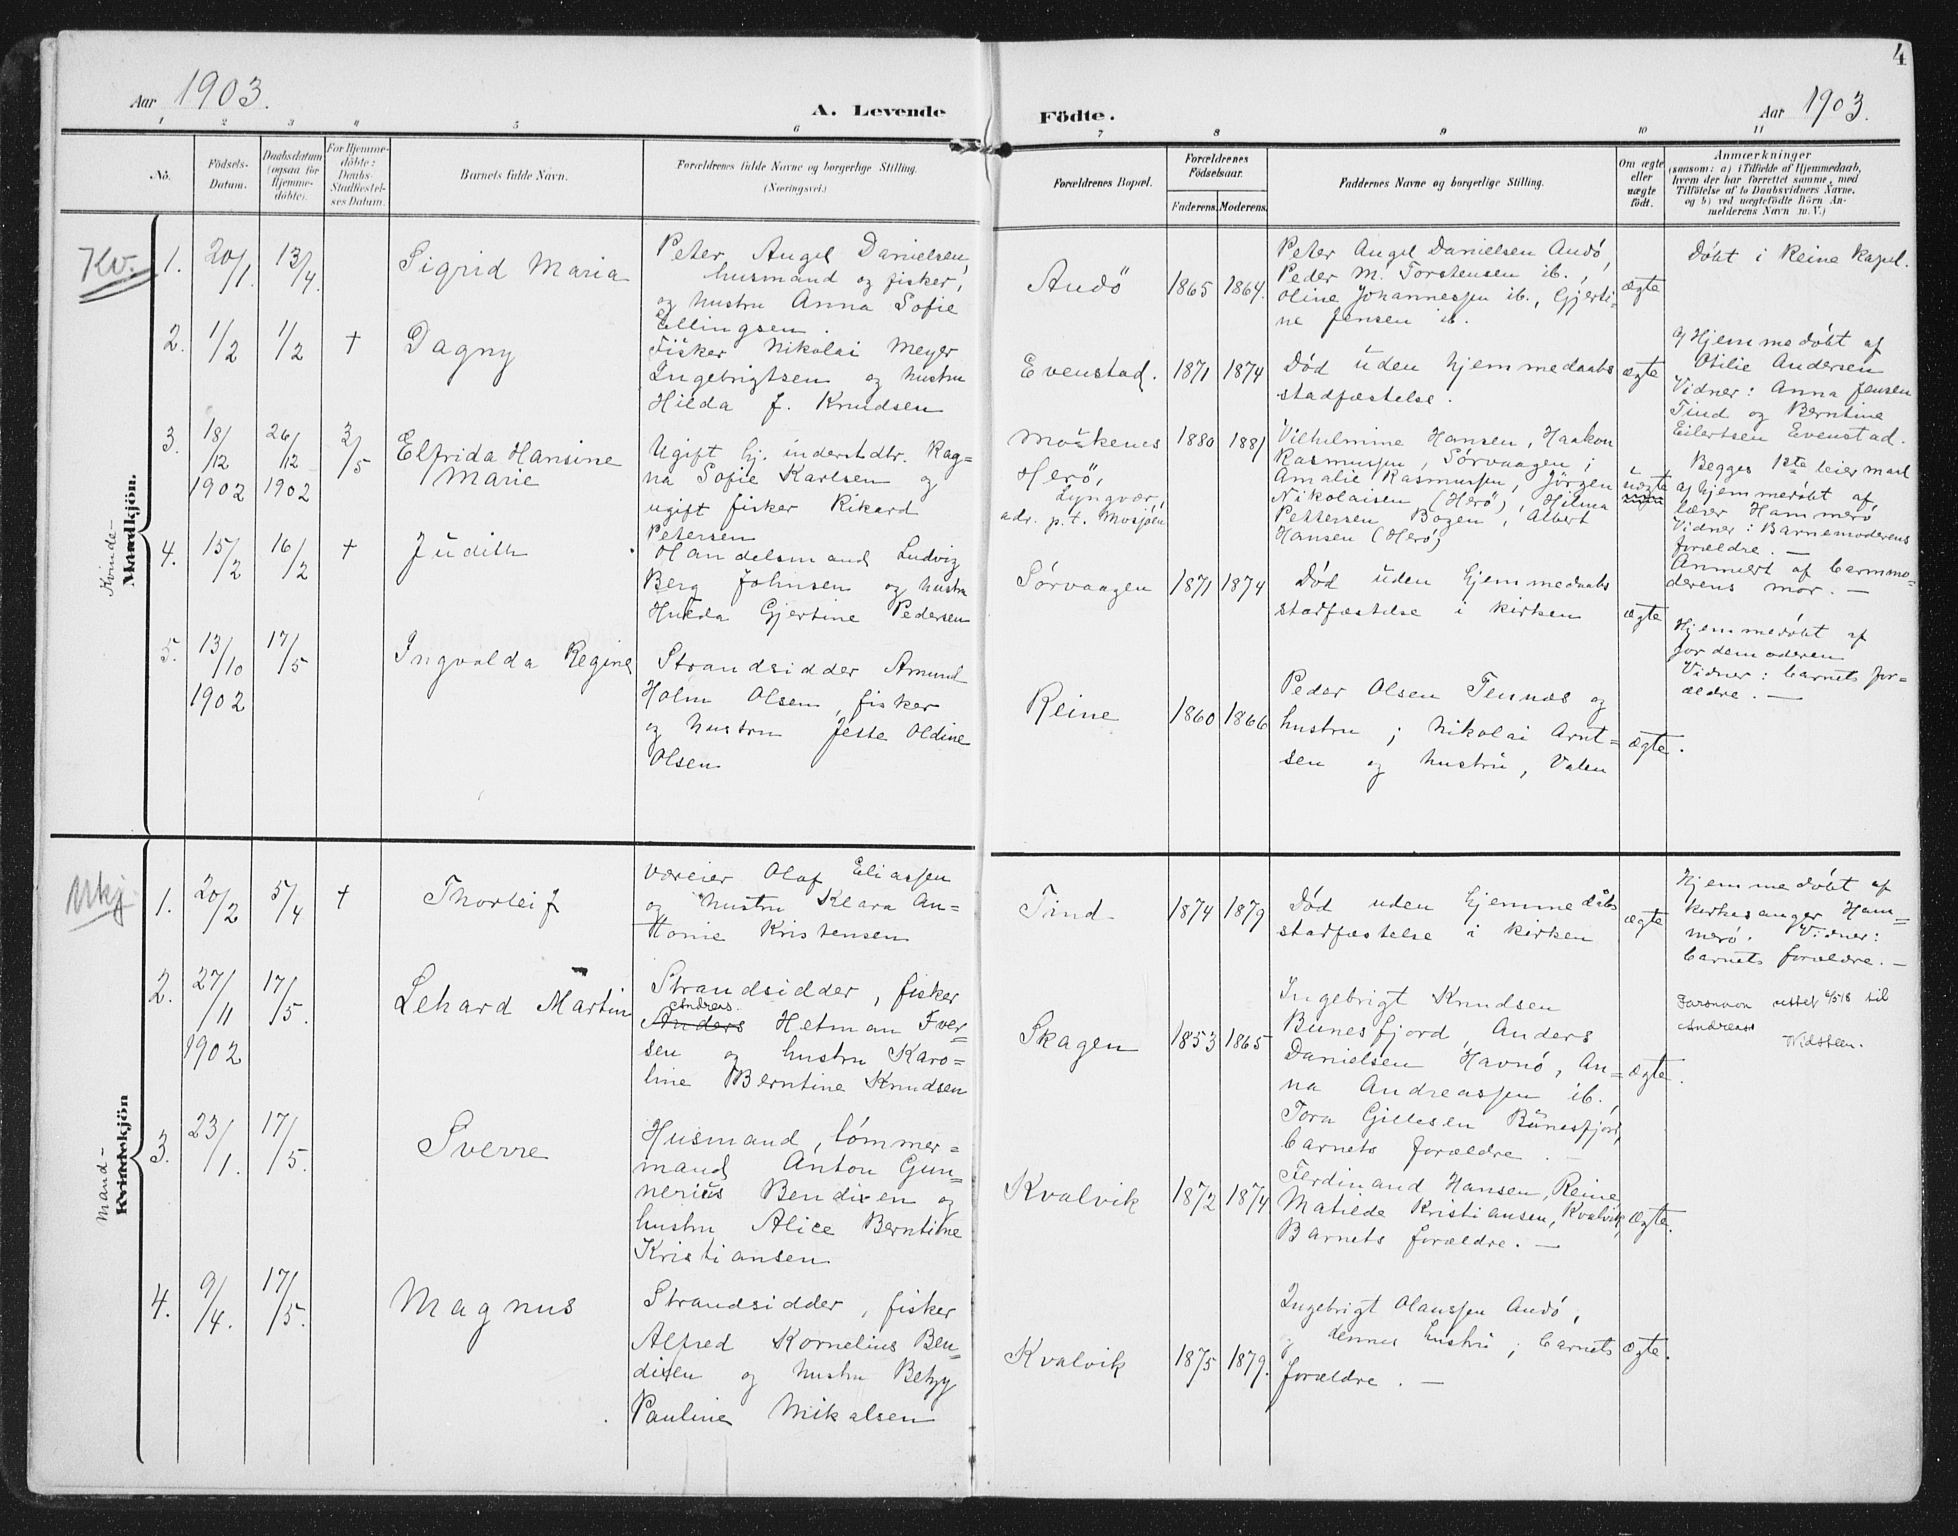 4
Aar 1903.
A. Levende
Födte.
Aar 1903.
1 2 3 4 5 6 7 8 9 10 11
No.
Födsels-
Datum.
Daabsdatum
(ogsaa for
Hjemme-
döbte).
For Hjemme-
döbte:
Daabs-
Stadfæstel-
ses Datum.
Barnets fulde Navn.
Forældrenes fulde Navne og borgerlige Stilling.
(Næringsvei.)
Forældrenes Bopæl.
Forældrenes
Födselsaar.
Faderens. Moderens.
Faddernes Navne og borgerlige Stilling.
Om ægte
eller
uægte
födt.
Anmærkninger
(saasom: a) i Tilfælde af Hjemmedaab,
hvem der har forrettet samme, med
Tilföielse af to Daabsvidners Navne,
og b) ved uægtefödte Börn An-
melderens Navn m. V.)
Kv.
Kvinde-
Mandkjön.
1.
20/1.
13/4.
Sigrid Maria
Peter Angel Danielsen,
husmand og fisker,
og hustru Anna Sofie
Ellingsen.
Andö
1865
1864.
Peter Angel Danielsen Andö,
Peder M. Torstensen ib.,
Oline Johannessen ib., Gjerti-
ne Jensen ib.
ægte
Döbt i Reine Kapel.
2.
1/2
1/2
+
Dagny
Fisker Nikolai Meyer
Ingebrigtsen og hustru
Hilda J. Knudsen
Evenstad.
1871
1874
Död uden hjemmedaabs
stadfæstelse.
ægte
a/ Hjemmedöbt af
Otilie Andersen
Vidner: Anna Jensen
Tind og Berntine
Eilertsen Evenstad.
3.
18/12
1902
26/12
1902
3/5
Elfrida Hansine
Marie
Ugift Gj. inderstdtr. Rag=
na Sofie Karlsen og
ugift fisker Rikard
Petersen
Moskenes
Herö,
Lyngvær,
adr. p.t. Mosjöen
1880
1881
Vilhelmine Hansen, Haakon
Rasmussen, Sörvaagen;
Amalie Rasmussen, Jörgen
Nikolaisen (Herö), Hilma
Pettersen Bogen, Albert
Hansen (Herö)
uægte
Begges 1ste leiermaal
a/ hjemmedöbt af
lærer Hammerö
Vidner: Barnemoderens
forældre. —
Anmeldt af barnmo=
derens mor. —
4.
15/2
16/2
+
Judith
Handelsmand Ludvig
Berg Johnsen og hustru
Hulda Gjertine Pedersen
Sörvaagen
1871
1874
Död uden hjemmedaabs
stadfæstelse i kirken
ægte
Hjemmedöbt af
jordemoderen
Vidner: barnets for=
ældre. —
5.
13/10
1902
17/5
Ingvalda Regine
Strandsidder Amund
Holm Olsen, fisker
og hustru Jette Oldine
Olsen
Reine
1860
1866
Peder Olsen Tennes og
hustru; Nikolai Arnt=
sen og hustru, Valen
ægte.
Mkj
Mand-
Kvindekjön
1.
20/2
5/4
+
Thorleif
Væreier Olaf Eliassen
og hustru Klara An=
tonie Kristensen
Tind
1874
1879
Död uden hjemmedåbs
stadfæstelse i kirken
ægte
Hjemmedöbt af
kirkesanger Ham=
merö. Vidner:
barnets forældre. —
2.
27/11
1902
17/5.
Lehard Martin
Strandsidder, fisker
Andreas
Anders Hetman Iver=
sen og hustru Karo=
line Berntine Knudsen
Skagen
1853
1865
Ingebrigt Knudsen
Bunesfjord, Anders
Danielsen Havnö, An=
na Andreassen ib.,
Tora Gillesen Bunesfjord,
barnets forældre. —
ægte.
Farsnavn rettet 6/5 18 til
Andreas
3.
23/1.
17/5.
Sverre
Husmand, tömmer=
mand Anton Gun=
nerius Bendixen og
hustru Alice Berntine
Kristiansen
Kvalvik
1872
1874
Ferdinand Hansen, Reine
Matilde Kristiansen, Kvalvik,
Barnets forældre. —
ægte.
4.
9/4.
17/5.
Magnus
Strandsidder, fisker
Alfred Kornelius Ben=
dixen og hustru Betzy
Pauline Mikalsen
Kvalvik
1875
1879.
Ingebrigt Olaussen Andö,
og dennes hustru; barnets
forældre. —
ægte.